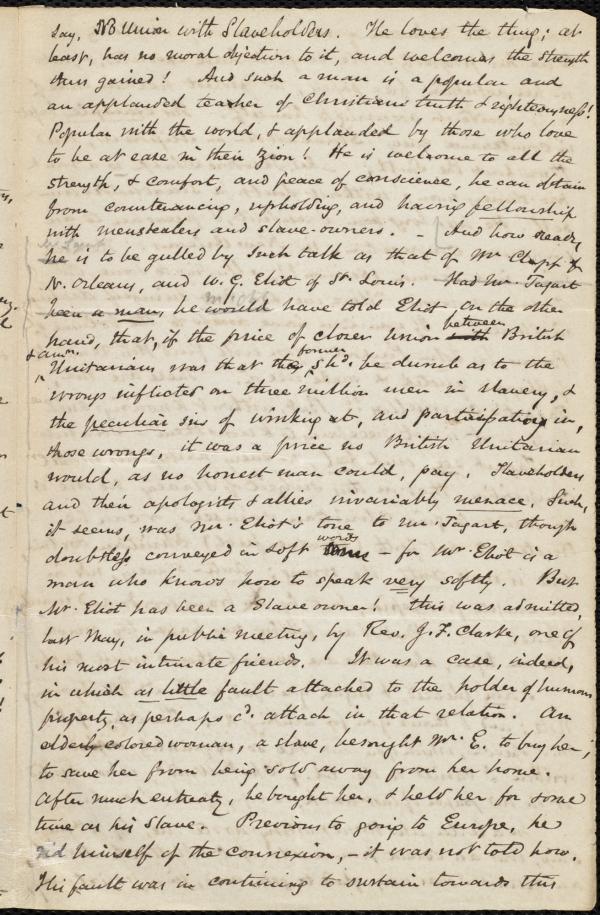 say, No Union with Slaveholders. He loves the thing; at
least, has no moral objection to it, and welcomes the strength
thus gained! And such a man is a popular and
an applauded teacher of Christian truth & righteousness!
Popular with the world, & applauded by those who love
to be at ease in their Zion! He is welcome to all the
strength, & comfort, and peace of conscience, he can obtain
from countenancing, upholding, and having fellowship
with menstealers and slave-owners. - And how ready
he is to be gulled by such talk as that of Mr Clapp of
N. Orleans, and W. G. Eliot of St. Louis. Had Mr. Tagart
been a man, he would have told Eliot, on the other
hand, that, if the price of closer union between British
& Amn. Unitarians was that the former shd. be dumb as to the
wrongs inflicted on three million men in slavery, &
the peculiar sins of winking at, and participation in,
those wrongs, it was a price no British Unitarian
would, as no honest man could, pay. Slaveholders
and their apologists & allies invariably menace. Such,
it seems, was Mr. Eliot's tone to Mr. Tagart, though
doubtless conveyed in soft words - for Mr. Eliot is a
man who knows how to speak very softly. But
Mr. Eliot has been a Slave owner! This was admitted,
last May, in public meeting, by Rev. J. F. Clarke, one of
his most intimate friends. It was a case, indeed,
in which as little fault attached to the holder of human
property, as perhaps cd. attach in that relation. An
elderly colored woman, a slave, besought Mr. E. to buy her;
to save her from being sold away from her home.
After much entreaty, he bought her, & held her for some
time as his Slave. Previous to going to Europe, he
rid himself of the connexion, - it was not told how.
His fault was in continuing to sustain towards this